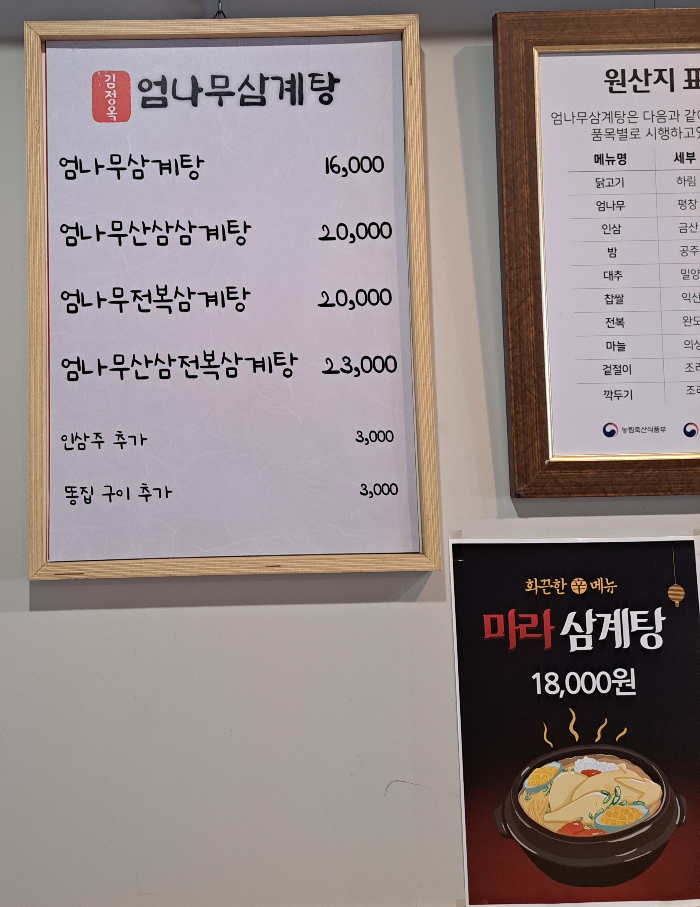 김정옥 엄나무삼계탕
엄나무삼계탕 16,000
엄나무산삼삼계탕 20,000
엄나무전복삼계탕 20,000
엄나무산삼전복삼계탕 23,000
인삼주 추가 3,000
똥집 구이 추가 3,000
원산지
엄나무삼계탕은 다음과
품목별로
메뉴명 세부
닭고기 하림
엄나무 평창
인삼 금산
밤 공주
대추 밀양
찹쌀 익산
전복 완도
마늘 의성
겉절이
깍두기
농림축산식품부
화끈한 辛 메뉴
마라 삼계탕
18,000원